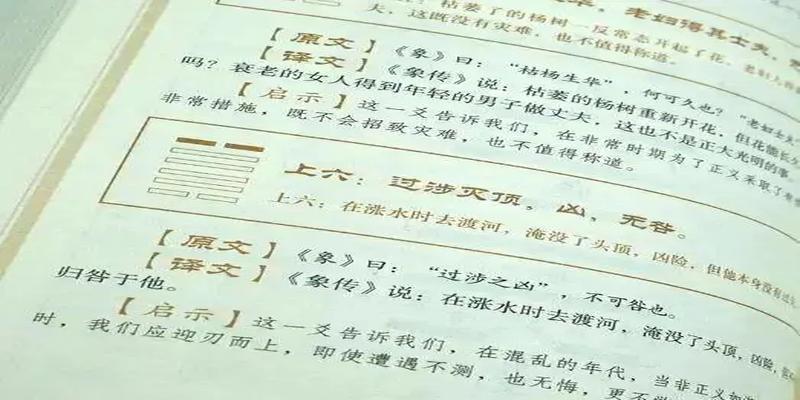 枯萎了的杨树一反常态开起了花，老妇
夫，这既没有灾难，也不值得称道。
【原文】《象》曰：“枯杨生华”，何可久也？“老妇士夫
【译文】《象传》说：枯萎的杨树重新开花，但花能长久
吗？衰老的女人得到年轻的男子做丈夫，这也不是正大光明的事。
【启示】这一爻告诉我们，在非常时期为了正义采取了
非常措施，既不会招致灾难，也不值得称道。
上六：过涉灭顶，凶，无咎。
上六：在涨水时去渡河，淹没了头顶，凶险，但他本身没有过
【原文】《象》曰：“过涉之凶”，不可咎也。
【译文】《象传》说：在涨水时去渡河，淹没了头顶，凶险，
归咎于他。
【启示】这一爻告诉我们，在混乱的年代，当非正义如
时，我们应迎刃而上，即使遭遇不测，也无悔，更不